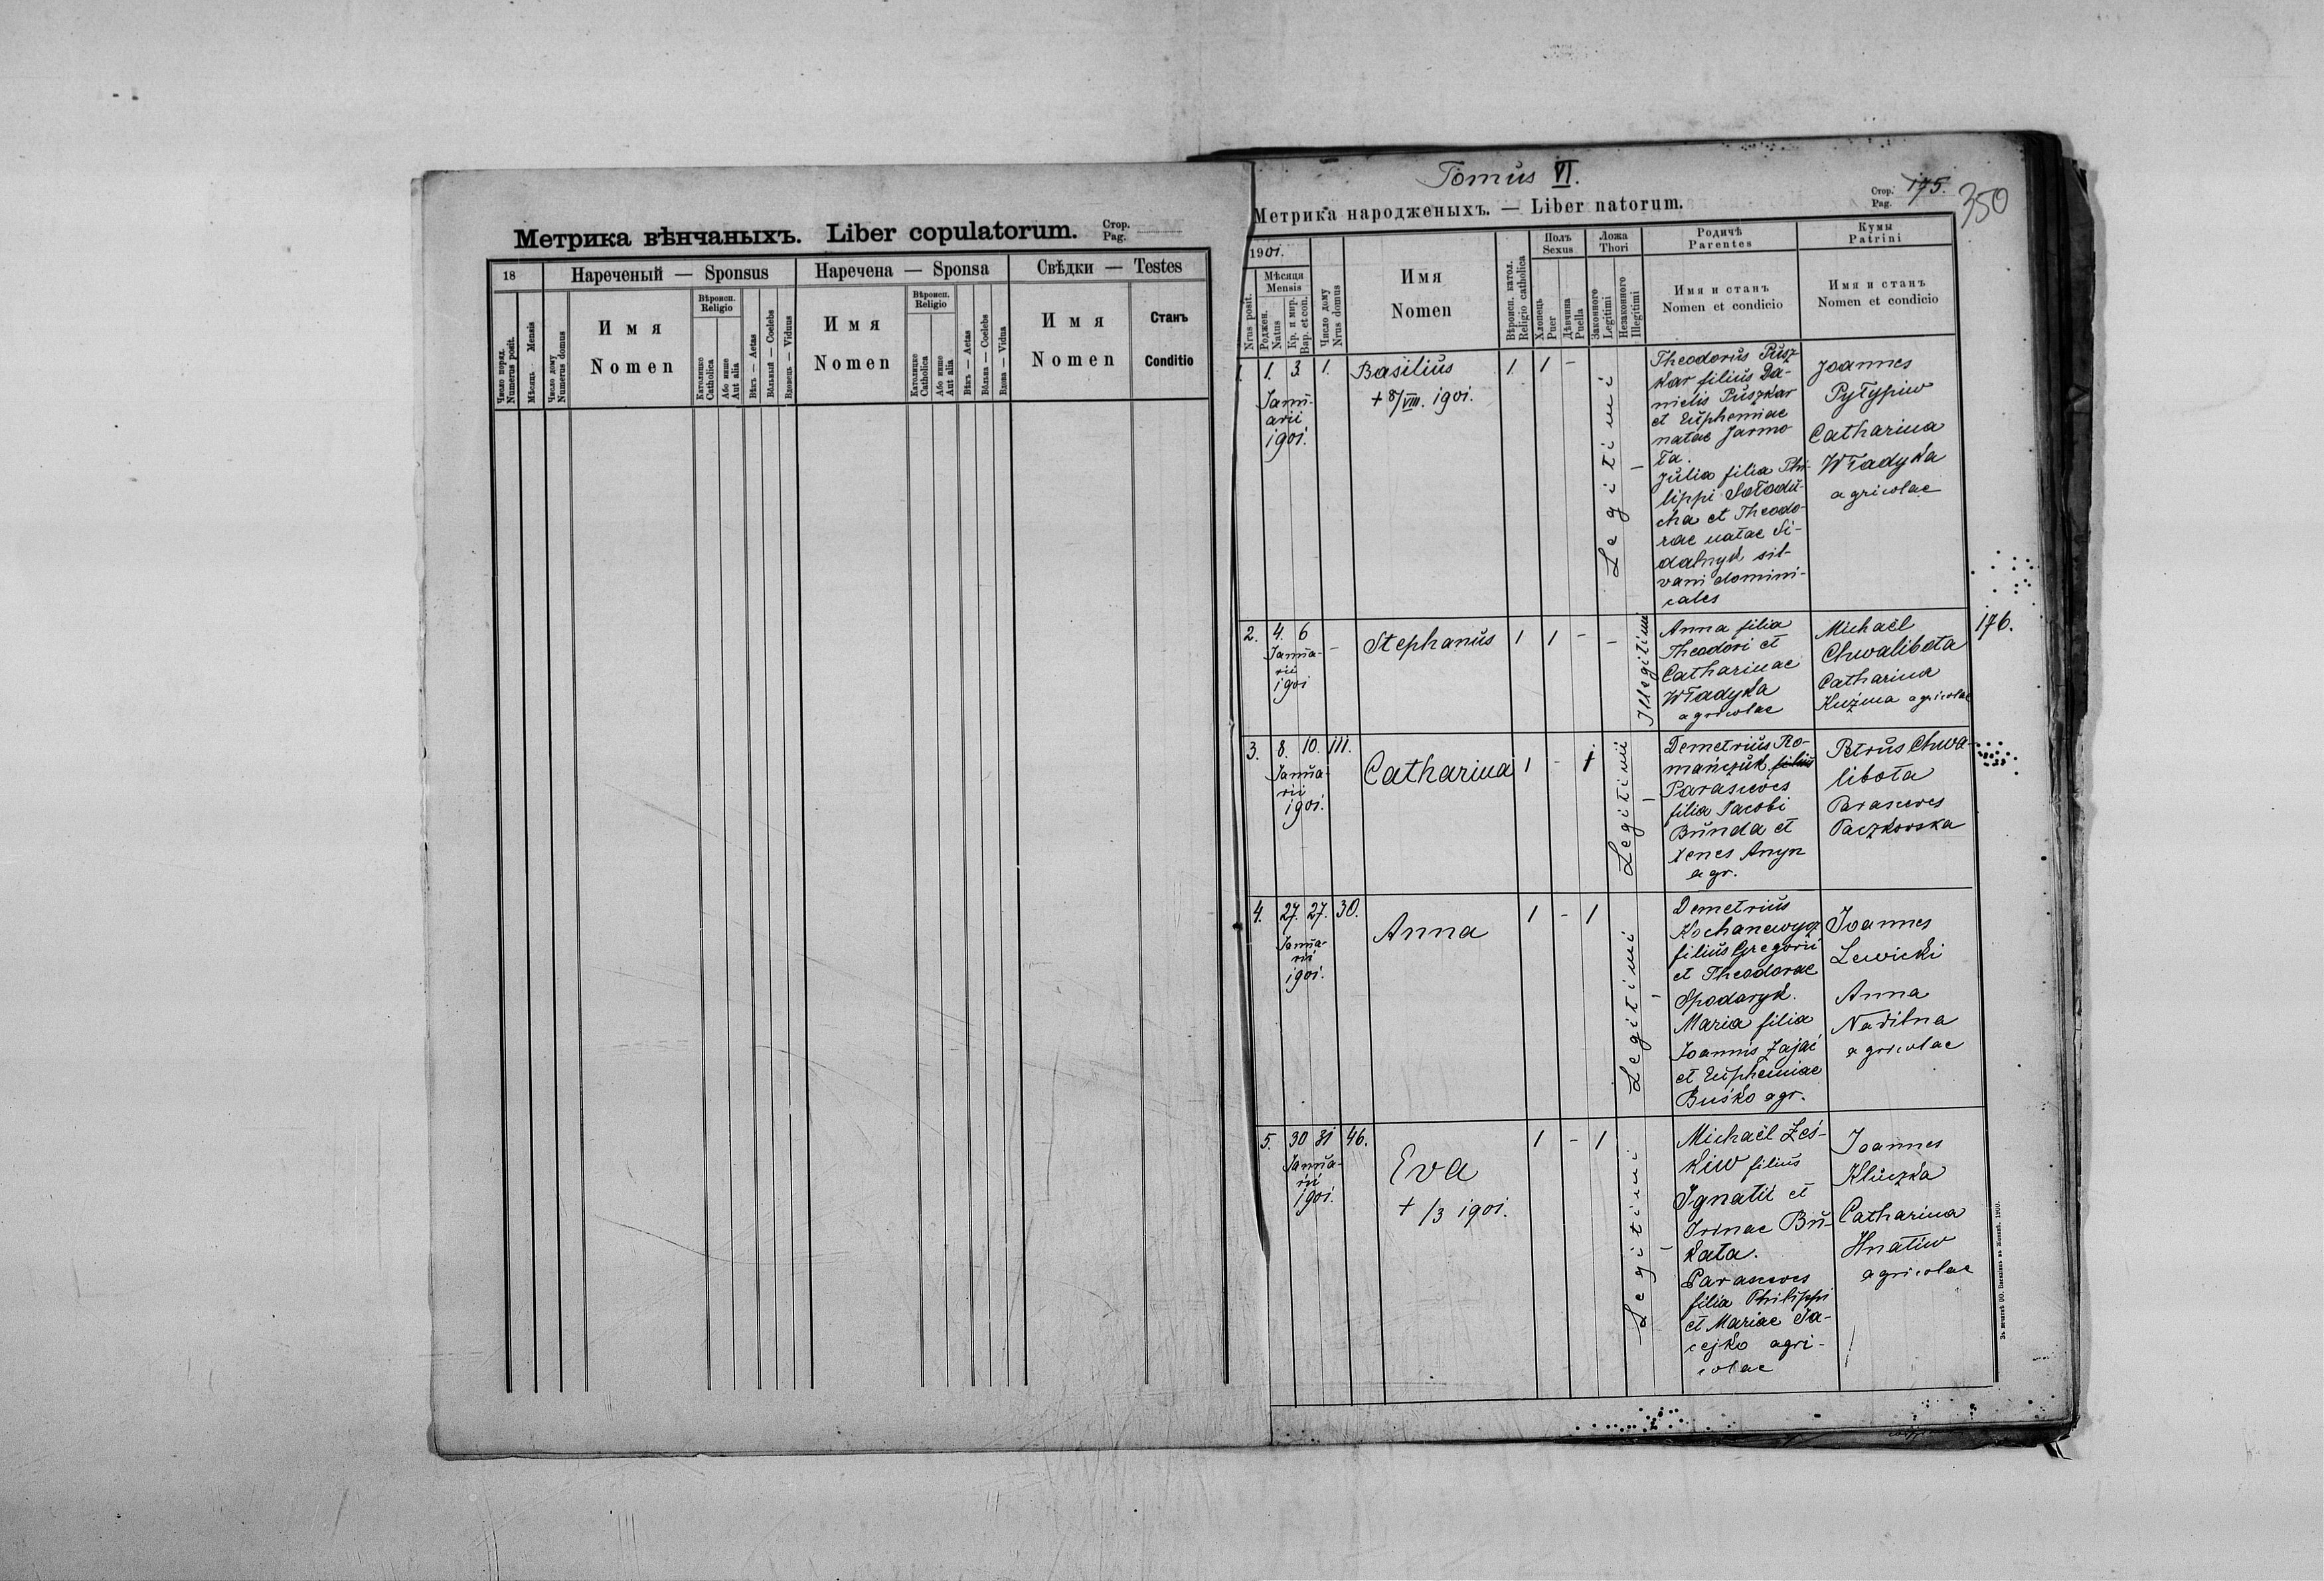 Метрика вѣнчаныхъ. Liber copulatorum. Стор. Pag.
18
Нареченый — Sponsus
Наречена — Sponsa
Свѣдки — Testes
Число поряд. Numerus posit.
Мѣсяць Mensis
Число дому Numerus domus
Имя
Nomen
Вѣроисп. Religio
Католицке Catholica
Або инше Aut alia
Вѣкъ — Aetas
Вôльный — Coelebs
Вдовець — Viduus
Имя
Nomen
Вѣроисп. Religio
Католицке Catholica
Або инше Aut alia
Вѣкъ — Aetas
Вôльна — Coelebs
Вдова — Vidua
Имя
Nomen
Станъ
Conditio
Tomŭs VI.
Метрика народженыхъ. — Liber natorum.
Стор. Pag. 175.
350
1901.
Nrus posit.
Мѣсяця
Mensis
Роджен. Natus
Кр. и мир. Bap. et con.
Число дому Nrus domus
Имя
Nomen
Вѣроисп. катол. Religio catholica
Полъ
Sexus
Хлопець Puer
Дѣвчина Puella
Ложа
Thori
Законного Legitimi
Незаконного Illegitimi
Родичѣ
Parentes
Имя и станъ
Nomen et condicio
Кумы
Patrini
Имя и станъ
Nomen et condicio
1. 1. 3. 1.
Janŭ-
arii
1901.
Basiliŭs
+ 8/VIII. 1901.
1 1 -
Legitimi
Theodorŭs Pŭsz
kar filiŭs Da-
nielis Pŭszkar
et Eŭphemiae
natae Jarmo
ła.
Jŭlia filia Phi-
lippi Sołodŭ-
cha et Theodo-
rae natae Si-
dalnyk sil-
vani domini-
cales
Joannes
Pyłypiw
Catharina
Władyka
agricolae
2. 4. 6 -
Janŭa-
rii
1901
Stephanŭs
1 1 - -
Illegitimi
Anna filia
Theodori et
Catharinae
Władyka
agricolae
Michaël
Chwalibota
Catharina
Kuźma agricolae
176.
3. 8. 10. 111.
Janŭa-
rii
1901.
Catharina
1 - 1
Legitimi
Demetriŭs Ro-
mańczŭk filiŭs
Parasceves
filia Jacobi
Bŭnda et
Xenes Anyn
agr.
Petrŭs Chwa-
libota
Parasceves
Paczkovska
4. 27. 27. 30.
Janŭa-
rii
1901.
Anna
1 - 1
Legitimi
Demetriŭs
Kochanewycz
filiŭs Gregorii
et Theodorae
Spodaryk.
Maria filia
Joannis Zając
et Eŭphemiae
Buśko agr.
Joannes
Lewicki
Anna
agricolae
5. 30 31 46.
Janŭa-
rii
1901.
Eva
+ /3 1901.
1 - 1
Legitimi
Michaël Łeś-
kiw filiŭs
Ignatii et
Irinae Bŭ-
kata.
Parasceves
filia Philippi
et Mariae Ja-
cejko agri-
colae
Joannes
Klŭczka
Catharina
Hnatiw
agricolae